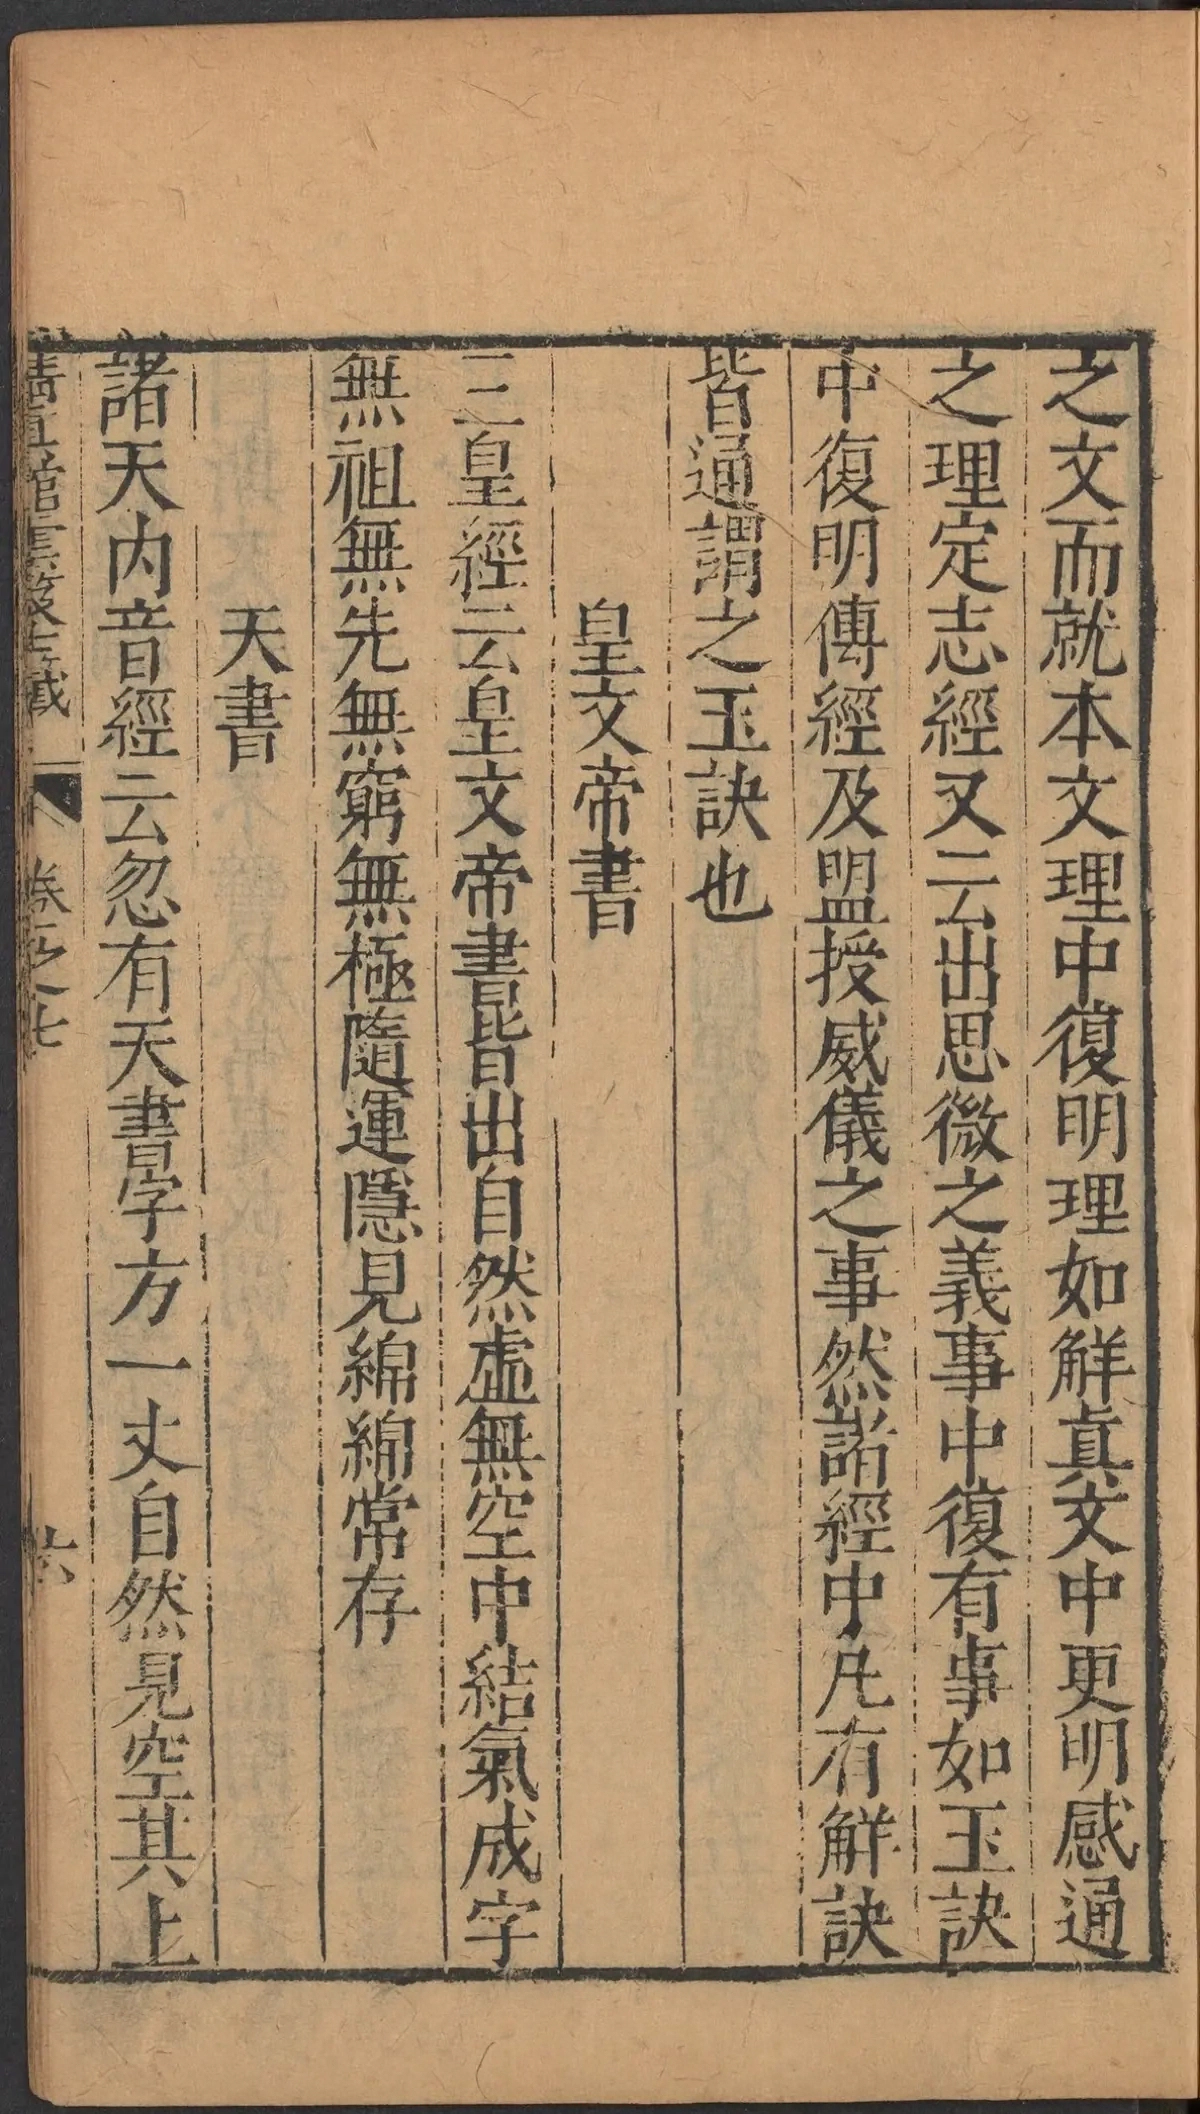 之文而就本文理中復明理如解真文中更明感通
之理定志經又云出思微之義事中復有事如玉訣
中復明傳經及盟授威儀之事然諸經中凡有解訣
皆通謂之玉訣也
皇文帝書
三皇經云皇文帝書皆出自然虛無空中結氣成字
無祖無先無窮無極隨運隱見綿綿常存
天書
諸天内音經云忽有天書字方一丈自然見空其上
清真館雲笈七籤
卷之七
六